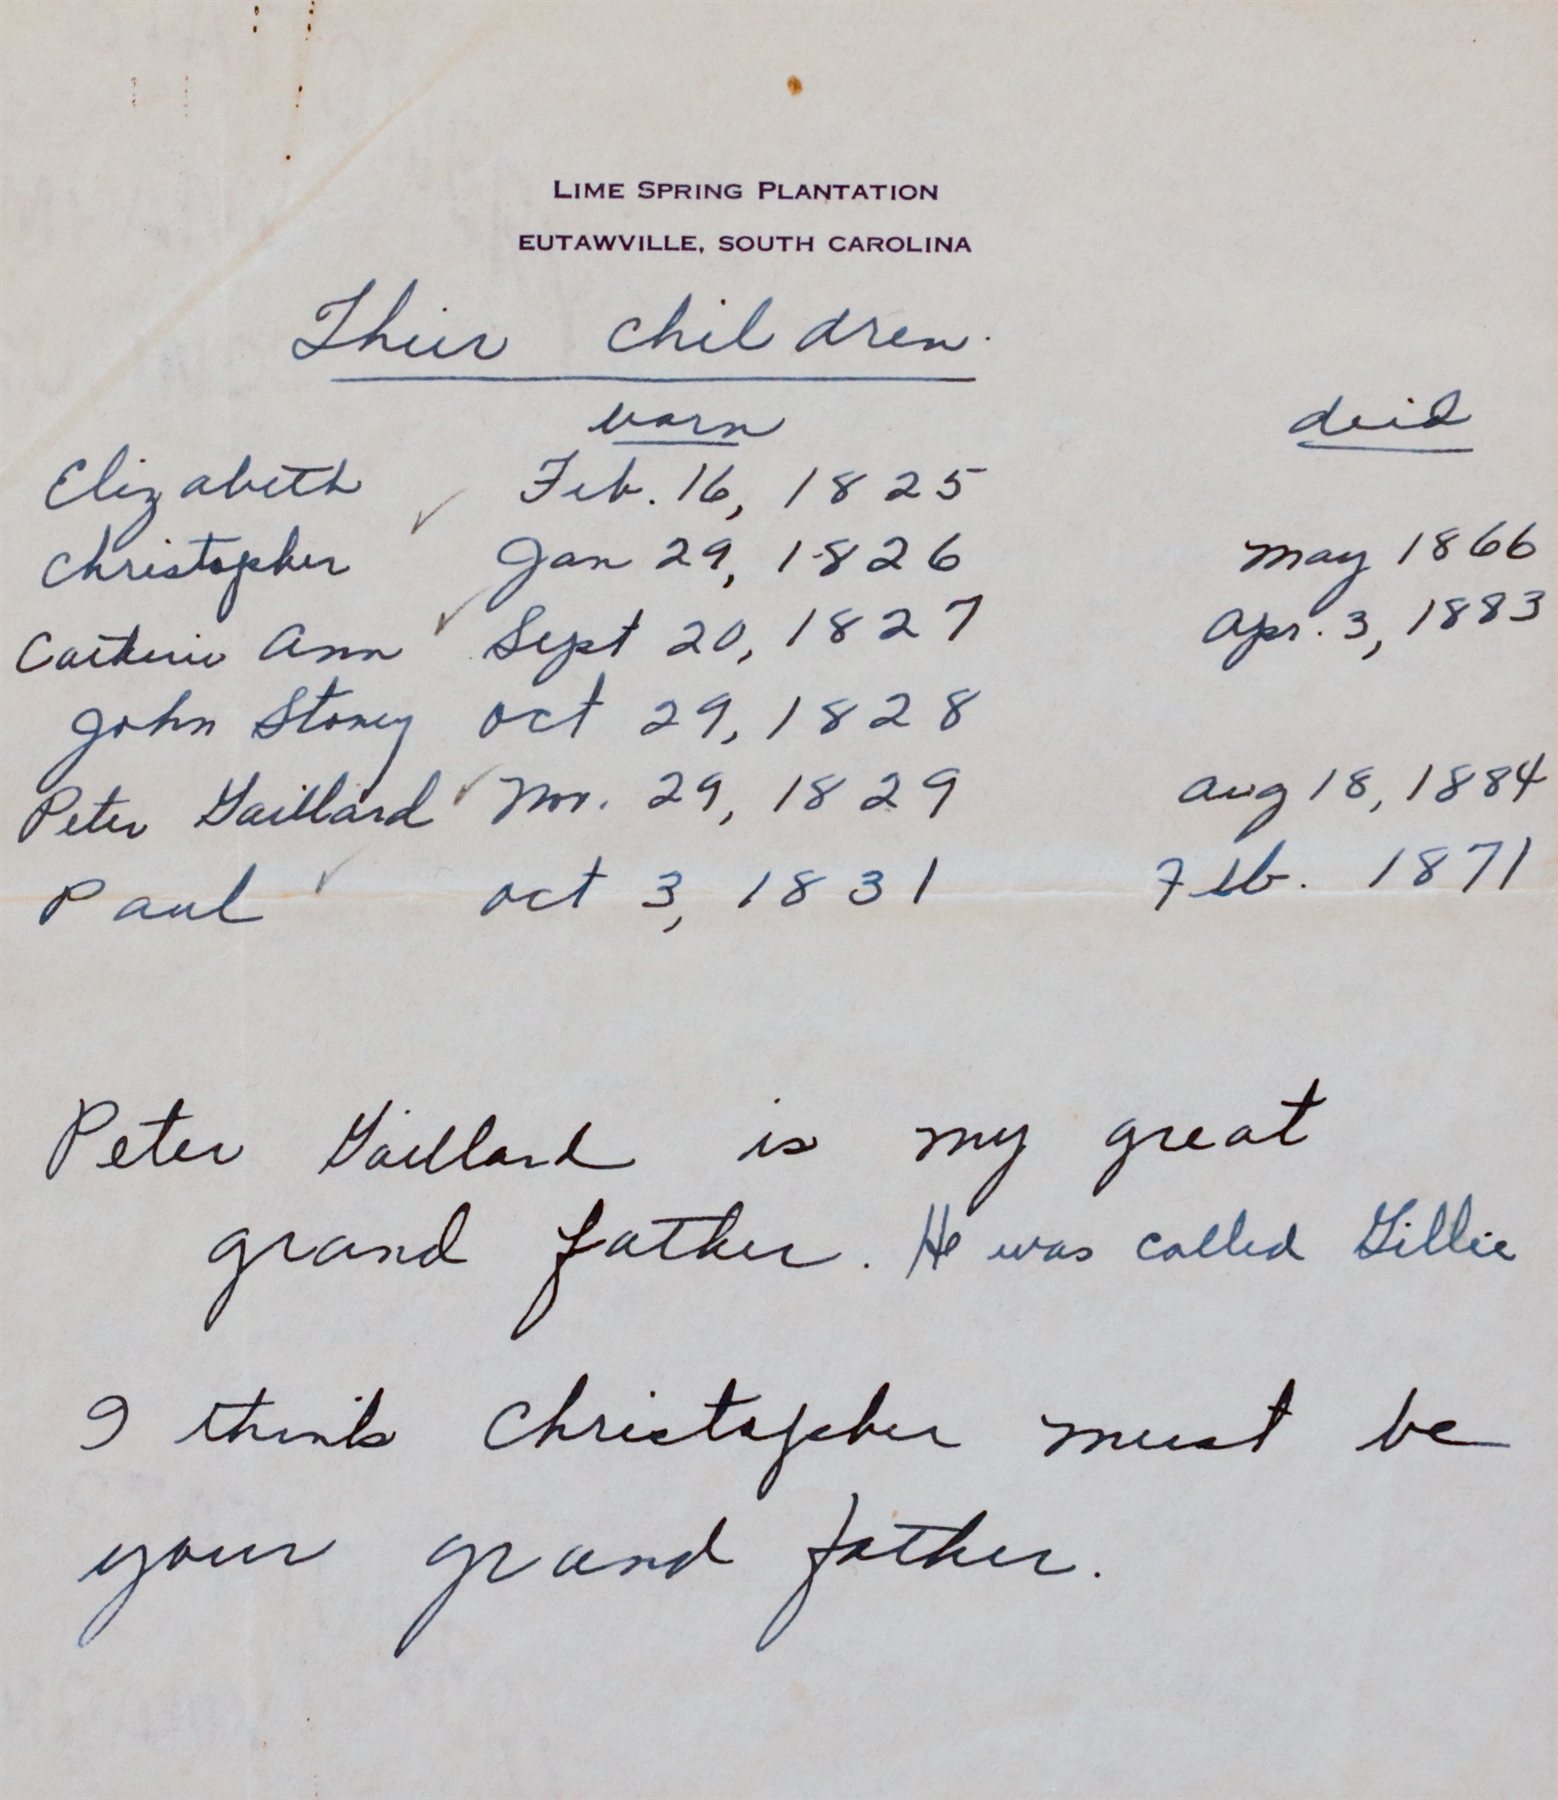 LIME SPRING PLANTATION
EUTAWVILLE, SOUTH CAROLINA
Thier children.
born died
Elizabeth Feb. 16, 1825
Christopher ✓ Jan 29, 1826 May 1866
Catherine Ann ✓ Sept 20, 1827 Apr. 3, 1883
John Stoney Oct 29, 1828
Peter Gaillard ✓ Nov. 29, 1829 Aug 18, 1884
Paul ✓ Oct 3, 1831 Feb. 1871
Peter Gaillard is my great
grand father. He was called Gillie
I think Christopher must be
your grand father.